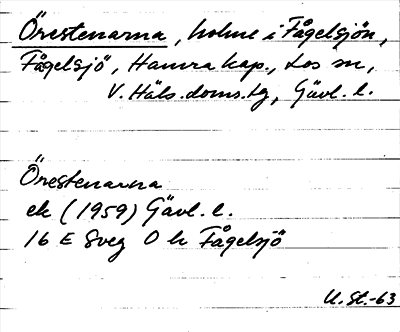 Örestenarna, holme i Fågelsjön,
Fågelsjö, Hamra kap., Los sn,
V. Häls. doms.tg, Gävl. l.
Örestenarna
ek (1959) Gävl. l.
16 E Sveg O h Fågelsjö
U. St.-63